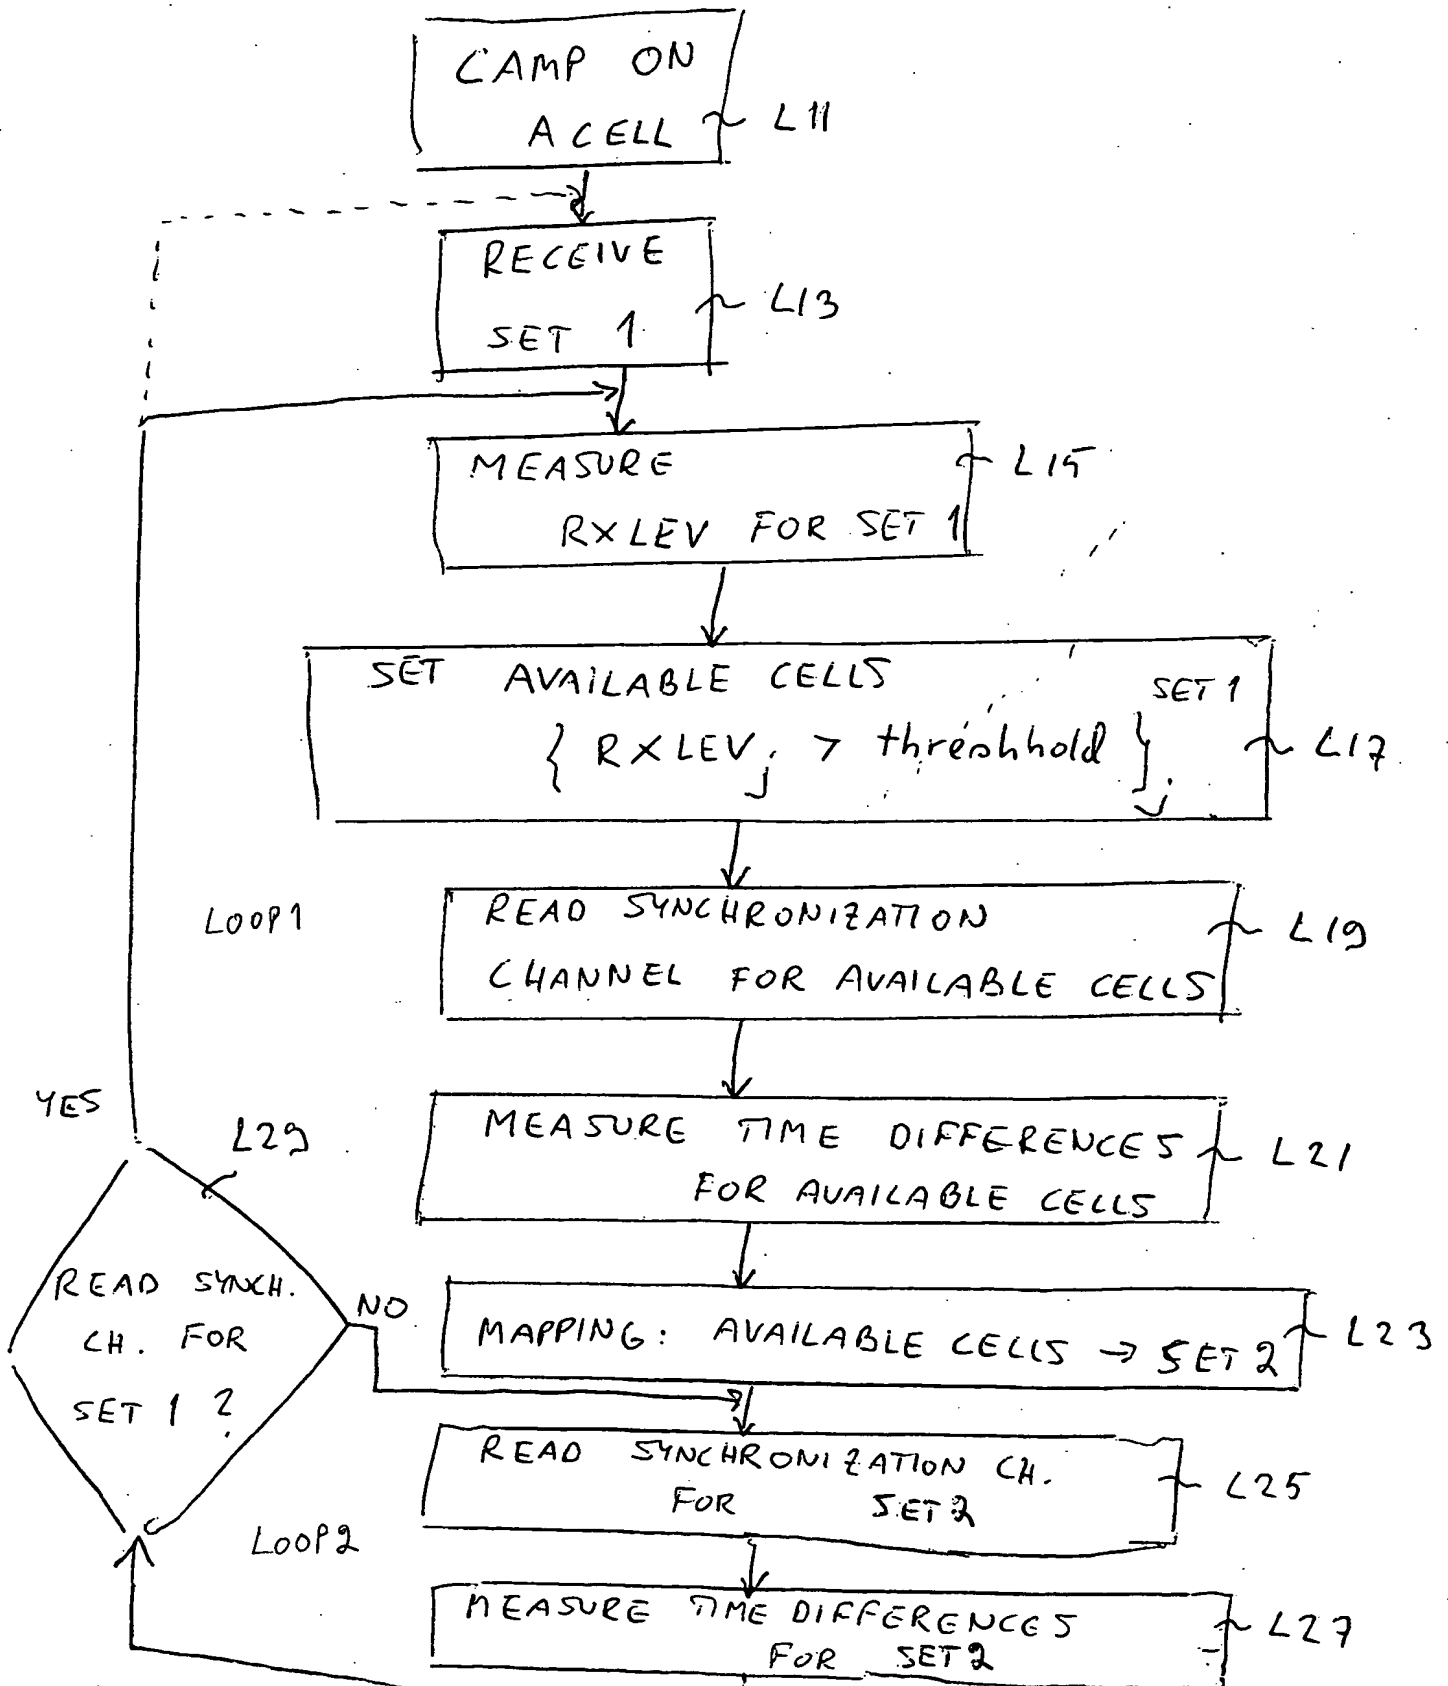 CAMP ON
A CELL
L11
RECEIVE
SET 1
L13
MEASURE
RXLEV FOR SET 1
L15
SET AVAILABLE CELLS
{ RXLEV j > threshhold } j SET 1
L17
LOOP1
READ SYNCHRONIZATION
CHANNEL FOR AVAILABLE CELLS
L19
YES
L29
MEASURE TIME DIFFERENCES
FOR AVAILABLE CELLS
L21
READ SYNCH.
CH. FOR
SET 1 ?
NO
MAPPING: AVAILABLE CELLS → SET 2
L23
READ SYNCHRONIZATION CH.
FOR SET 2
L25
LOOP2
MEASURE TIME DIFFERENCES
FOR SET 2
L27